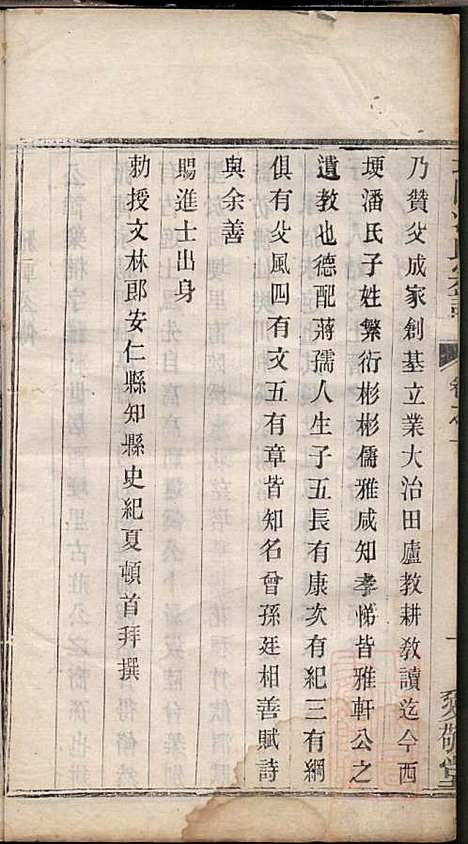 乃贊父成家創基立業大治田廬教耕敎讀迄今西
埂潘氏子姓繁衍彬彬儒雅咸知孝悌皆雅軒公之
遺教也德配蔣孺人生子五長有康次有紀三有綱
俱有父風四有文五有章皆知名曾孫廷相善賦詩
與余善
賜進士出身
勅授文林郎安仁縣知縣史紀夏頓首拜撰
卷之一
愛敬堂